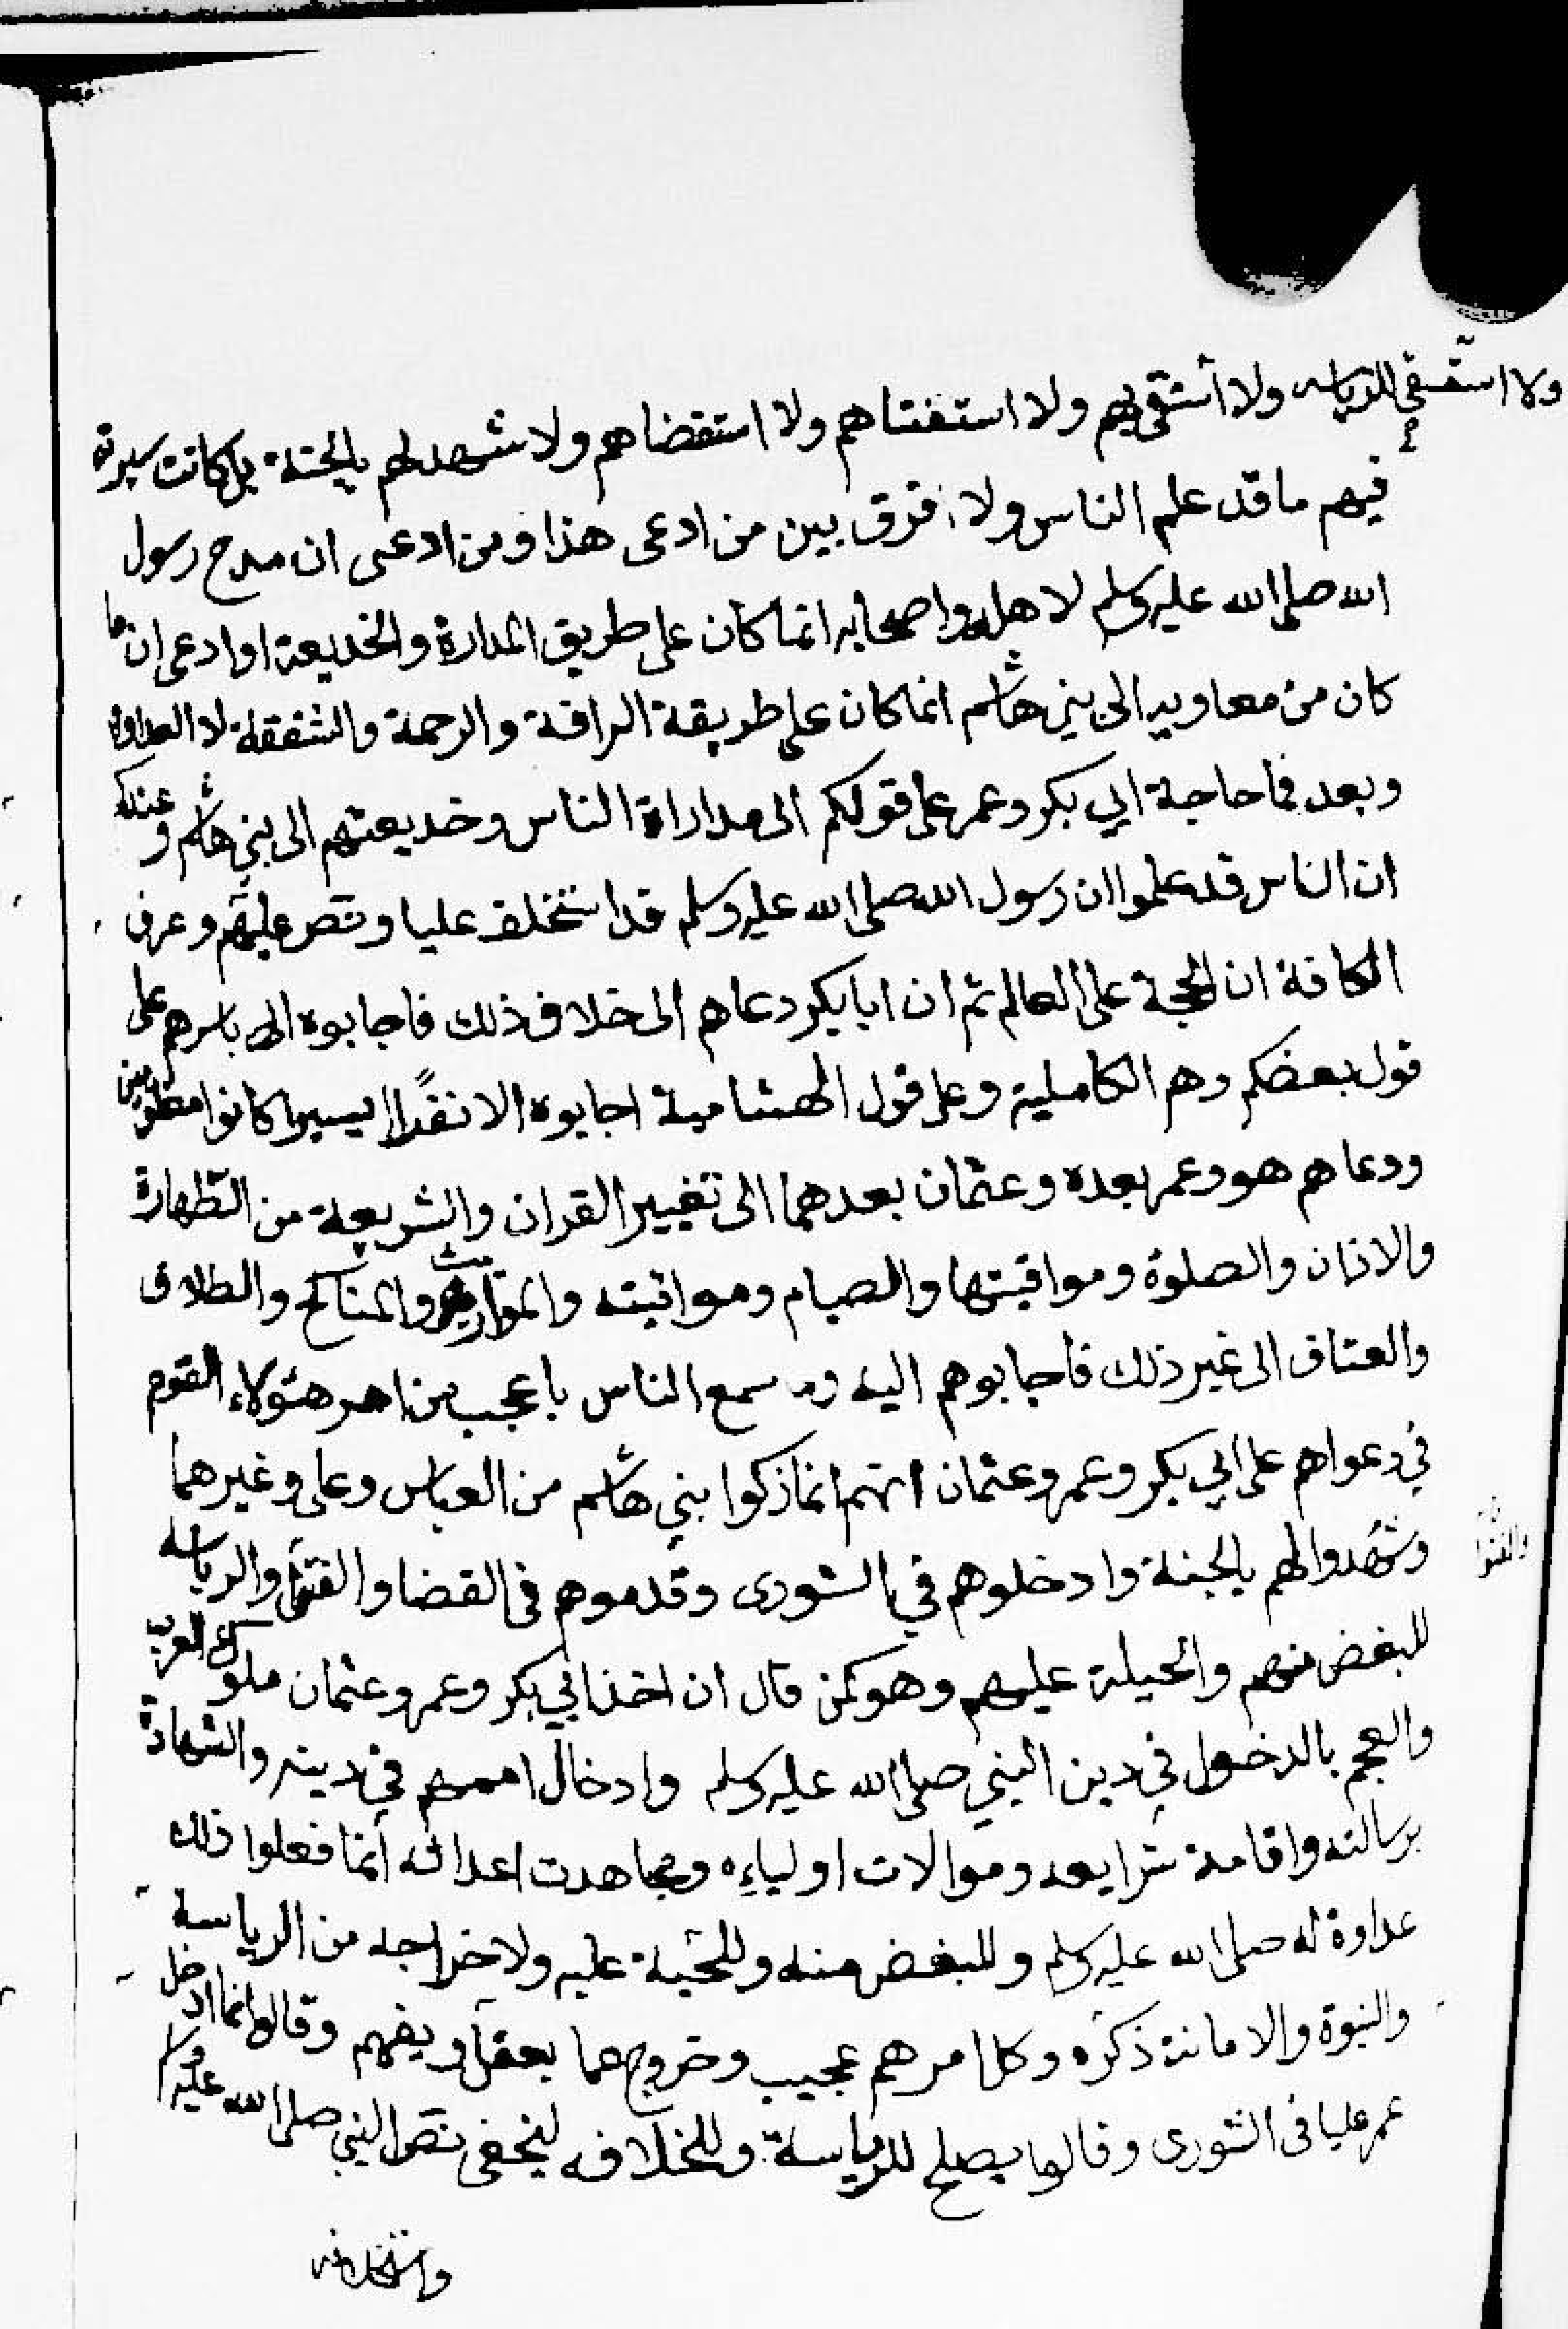 ولا استسقى بهم ولا استفتاهم ولا استقضاهم ولا شهد لهم بالجنة بل كانت سيرته
فيهم ما قد علم الناس ولا فرق بين من ادعى هذا ومن ادعى ان مدح رسول
الله صلى الله عليه وسلم لاهله واصحابه انما كان على طريق المدارة والخديعة او ادعى ان ما
كان من معاويه الى بني هاشم انما كان على طريقة الرافة والرحمة والشفقة لا العداوة
وبعد فما حاجة ابي بكر وعمر على قولكم الى مداراة الناس وخديعتهم الى بني هاشم وعندكم
ان الناس قد علموا ان رسول الله صلى الله عليه وسلم قد استخلف عليا ونص عليهم وعرف
الكافة ان الحجة على العالم ثم ان ابا بكر دعاهم الى خلاف ذلك فاجابوه اليه باسرهم على
قول بعضكم وهم الكاملية وعلى قول الهشامية اجابوه الا نفرًا يسيرا كانوا
ودعاهم هو وعمر بعده وعثمان بعدهما الى تغيير القران والشريعة من الطهارة
والاذان والصلوة ومواقيتها والصيام ومواقيته والمواريث والمناكح والطلاق
والعتاق الى غير ذلك فاجابوهم اليه وما سمع الناس باعجب من امر هئولاء القوم
في دعواهم على ابي بكر وعمر وعثمان انهم انما زكوا بني هاشم من العباس وعلي وغيرهما
وشهدوا لهم بالجنة وادخلوهم في الشورى وقدموهم في القضا والفتيا والرياسه
للبغض منهم والحيلة عليهم وهو كمن قال ان اخذ ابي بكر وعمر وعثمان ملوك العرب
والعجم بالدخول في دين النبي صلى الله عليه وسلم وادخال اممهم في دينه والشهادة
برسالته واقامة شرايعه وموالات اولياءه ومجاهدت اعدائه انما فعلوا ذلك
عداوة له صلى الله عليه وسلم وللبغض منه عليه ولاخراجه من الرياسة
والنبوة والامانة ذكره وكل امرهم عجيب وقالوا انما ادخل
عمر عليا في الشورى وقالوا يصلح للرياسة وللخلافه ليخفى نص النبي صلى الله عليه وسلم
واستخلافه